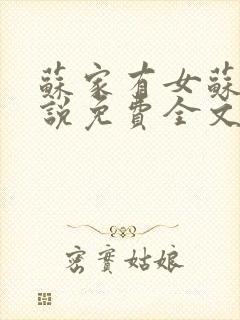 蘇家有女蘇
說免費全文
密實姑娘